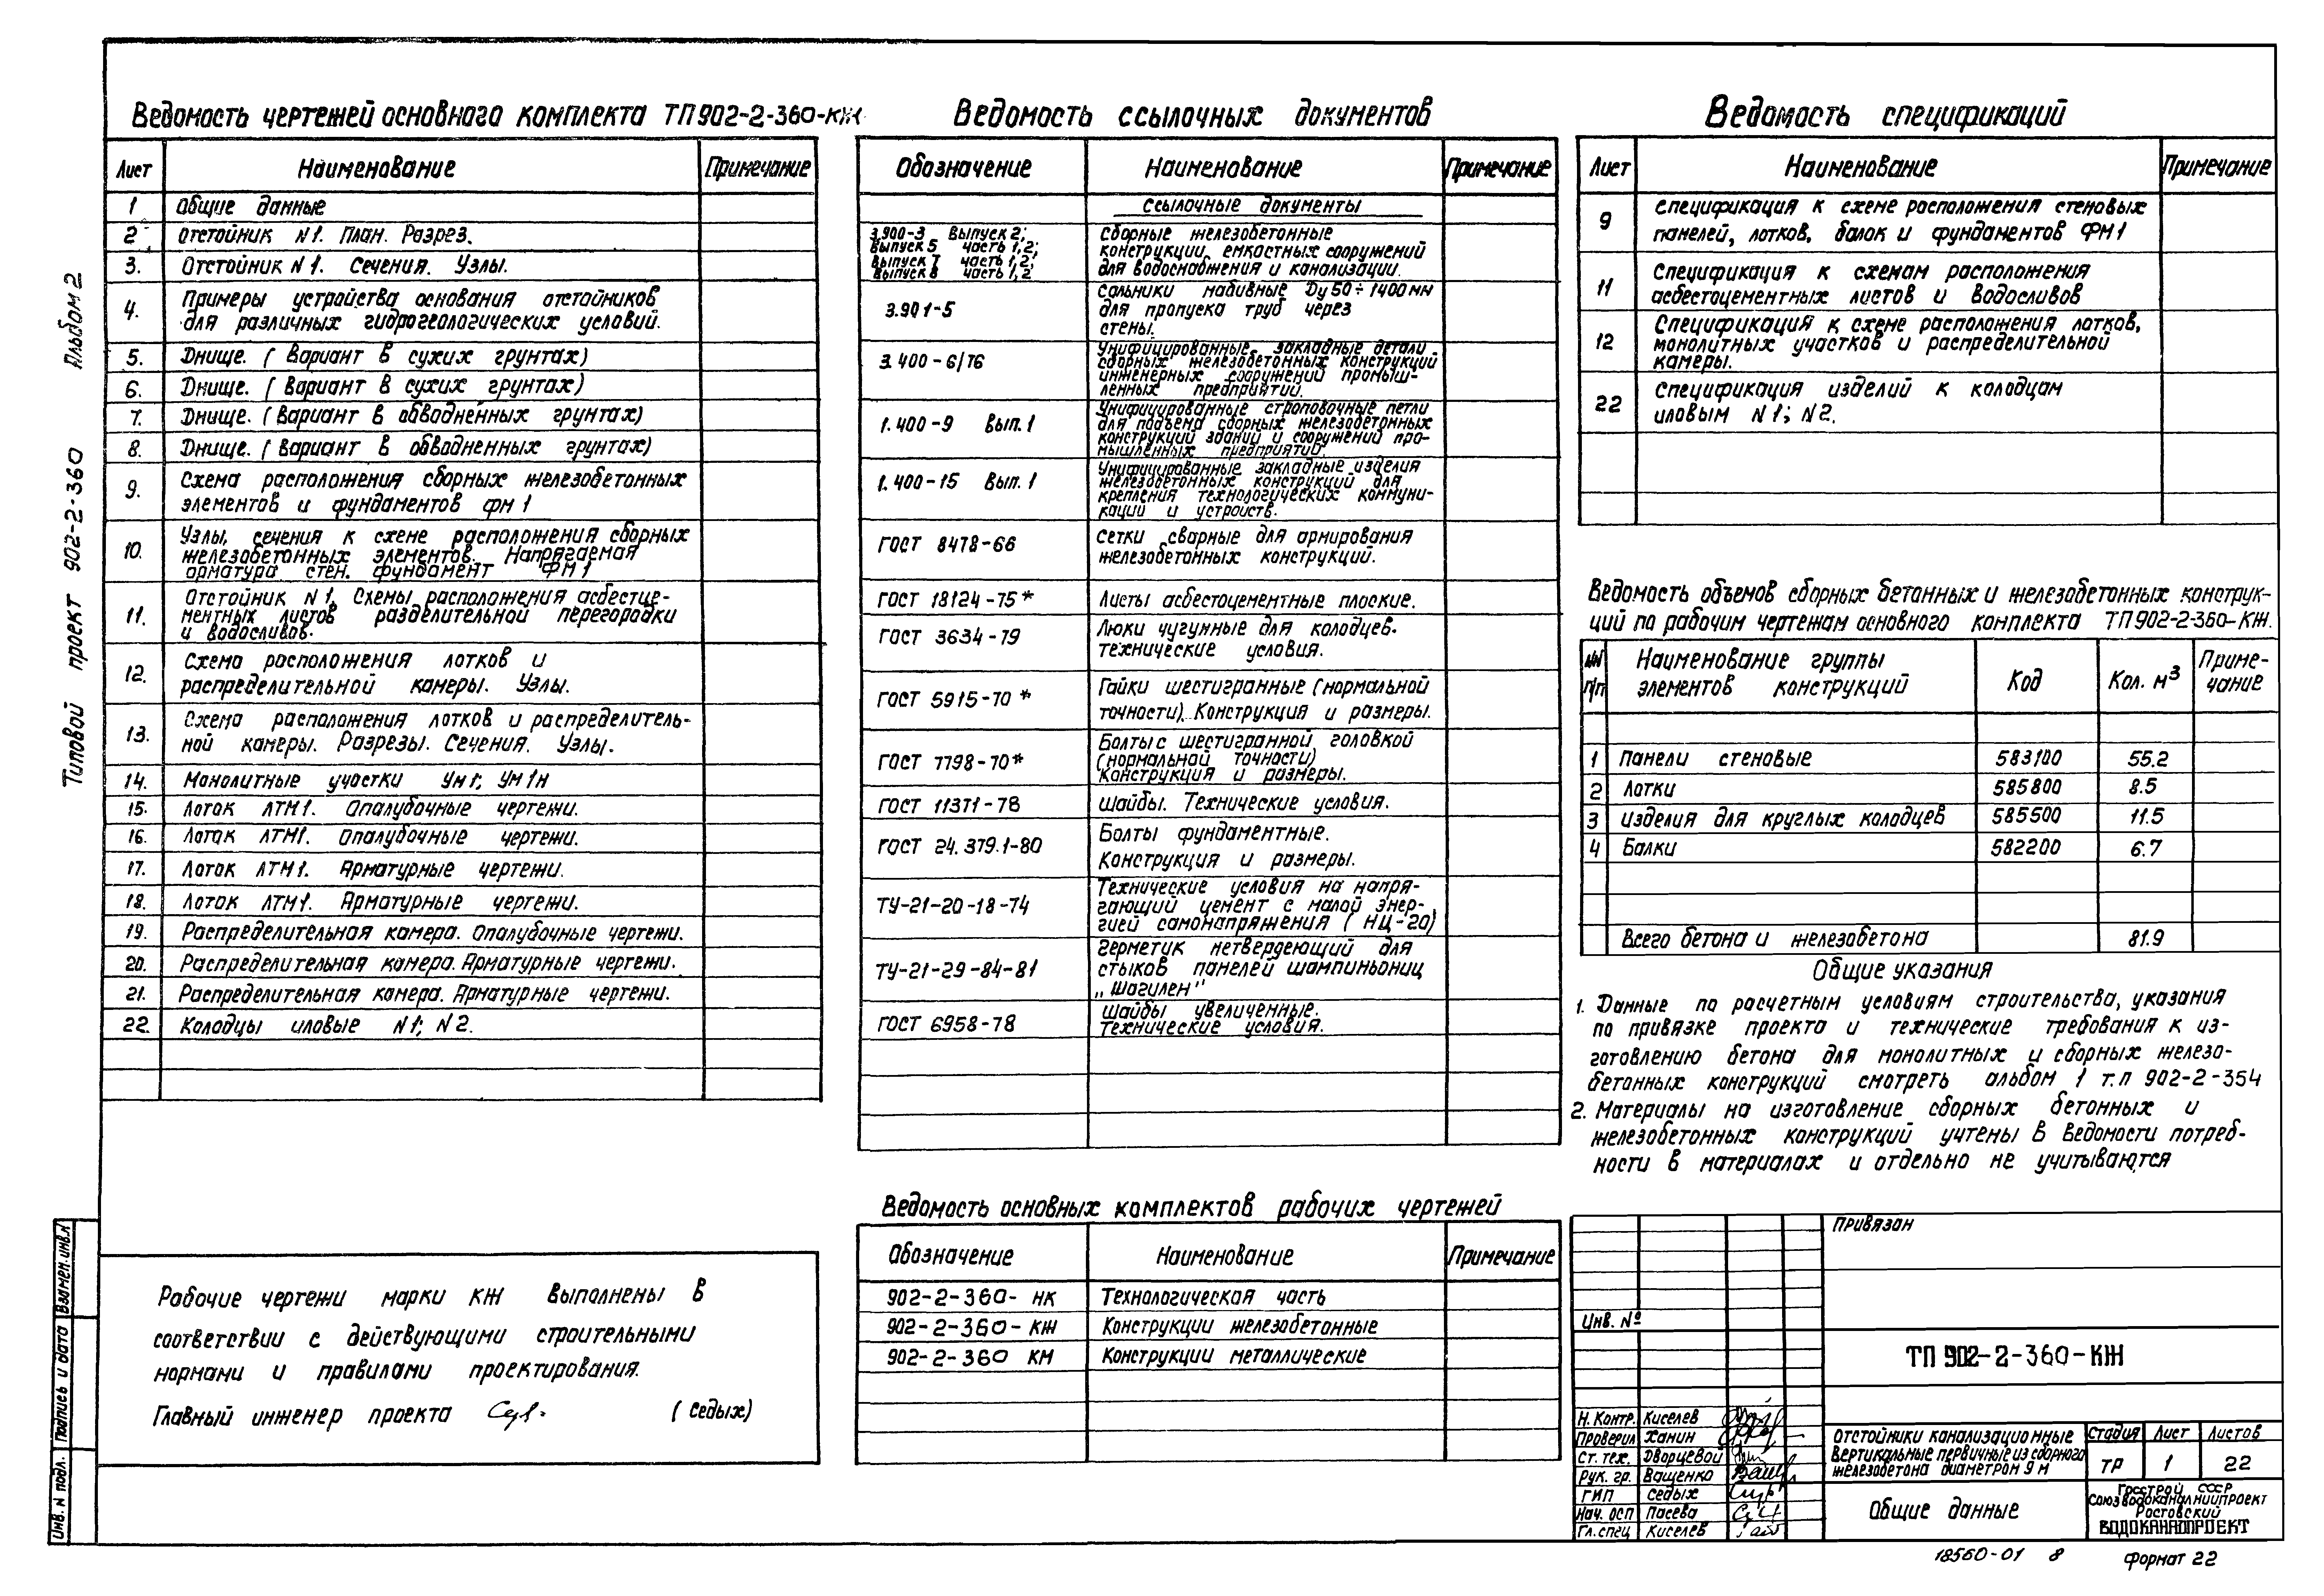 Альбом 2
Типовой проект 902-2-360
Ведомость чертежей основного комплекта ТП 902-2-360-КЖ
Лист Наименование Примечание
1 Общие данные
2 Отстойник N1. План. Разрез.
3. Отстойник N1. Сечения. Узлы.
4. Примеры устройства основания отстойников
для различных гидрогеологических условий.
5. Днище. (Вариант в сухих грунтах)
6. Днище. (Вариант в сухих грунтах)
7. Днище. (Вариант в обводненных грунтах)
8. Днище. (Вариант в обводненных грунтах)
9. Схема расположения сборных железобетонных
элементов и фундаментов фм1
10. Узлы, сечения к схеме расположения сборных
железобетонных элементов. Напрягаемая
арматура стен. фундамент ФМ1
11. Отстойник N1. Схемы расположения асбестце-
ментных листов разделительной перегородки
и водосливов.
12. Схема расположения лотков и
распределительной камеры. Узлы.
13. Схема расположения лотков и распределитель-
ной камеры. Разрезы. Сечения. Узлы.
14. Монолитные участки Ум1; Ум1н
15. Лоток ЛТМ1. Опалубочные чертежи.
16. Лоток ЛТМ1. Опалубочные чертежи.
17. Лоток ЛТМ1. Арматурные чертежи.
18. Лоток ЛТМ1. Арматурные чертежи.
19. Распределительная камера. Опалубочные чертежи.
20. Распределительная камера. Арматурные чертежи.
21. Распределительная камера. Арматурные чертежи.
22. Колодцы иловые N1; N2.
Рабочие чертежи марки КЖ выполнены в
соответствии с действующими строительными
нормами и правилами проектирования.
Главный инженер проекта (Седых)
Взамен. инв.N
Подпись и дата
Инв. N подл.
Ведомость ссылочных документов
Обозначение Наименование Примечание
Ссылочные документы
3.900-3 Выпуск 2; Сборные железобетонные
Выпуск 5 часть 1,2; конструкции емкостных сооружений
Выпуск 7 часть 1,2; для водоснабжения и канализации.
Выпуск 8 часть 1,2
3.901-5 Сальники набивные Ду 50÷1400мм
для пропуска труб через
стены.
3.400-6/76 Унифицированные закладные детали
сборных железобетонных конструкций
инженерных сооружений промыш-
ленных предприятий.
1.400-9 Вып.1 Унифицированные строповочные петли
для подъема сборных железобетонных
конструкций зданий и сооружений про-
мышленных предприятий.
1.400-15 Вып.1 Унифицированные закладные изделия
железобетонных конструкций для
крепления технологических коммуни-
каций и устройств.
ГОСТ 8478-66 Сетки сварные для армирования
железобетонных конструкций.
ГОСТ 18124-75* Листы асбестоцементные плоские.
ГОСТ 3634-79 Люки чугунные для колодцев.
технические условия.
ГОСТ 5915-70* Гайки шестигранные (нормальной
точности). Конструкция и размеры.
ГОСТ 7798-70* Болты с шестигранной головкой
(нормальной точности)
Конструкция и размеры.
ГОСТ 11371-78 Шайбы. Технические условия.
ГОСТ 24.379.1-80 Болты фундаментные.
Конструкция и размеры.
ТУ-21-20-18-74 Технические условия на напря-
гающий цемент с малой энер-
гией самонапряжения (НЦ-20)
ТУ-21-29-84-81 Герметик нетвердеющий для
стыков панелей шампиньониц
„Шагилен"
ГОСТ 6958-78 Шайбы увеличенные.
Технические условия.
Ведомость основных комплектов рабочих чертежей
Обозначение Наименование Примечание
902-2-360-НК Технологическая часть
902-2-360-КЖ Конструкции железобетонные
902-2-360 КМ Конструкции металлические
Ведомость спецификаций
Лист Наименование Примечание
9 Спецификация к схеме расположения стеновых
панелей, лотков, балок и фундаментов ФМ1
11 Спецификация к схемам расположения
асбестоцементных листов и водосливов
12 Спецификация к схеме расположения лотков,
монолитных участков и распределительной
камеры.
22 Спецификация изделий к колодцам
иловым N1; N2.
Ведомость объемов сборных бетонных и железобетонных конструк-
ций по рабочим чертежам основного комплекта ТП 902-2-360-КЖ.
NN п/п Наименование группы элементов конструкций Код Кол. м³ Приме-
чание
1 Панели стеновые 583100 55.2
2 Лотки 585800 8.5
3 Изделия для круглых колодцев 585500 11.5
4 Балки 582200 6.7
Всего бетона и железобетона 81.9
Общие указания
1. Данные по расчетным условиям строительства, указания
по привязке проекта и технические требования к из-
готовлению бетона для монолитных и сборных железо-
бетонных конструкций смотреть альбом 1 т.п 902-2-354
2. Материалы на изготовление сборных бетонных и
железобетонных конструкций учтены в ведомости потреб-
ности в материалах и отдельно не учитываются
Привязан
Инв. №
ТП 902-2-360-КЖ
Н. Контр. Киселев
Проверил Ханин
Ст. тех. Дворцевой
Рук. гр. Ващенко
ГИП Седых
Нач. осп Пасева
Гл. спец Киселев
Отстойники канализационные
вертикальные первичные из сборного
железобетона диаметром 9 м
Стадия Лист Листов
ТР 1 22
Общие данные
Госстрой СССР
Союзводоканалниипроект
Ростовский
ВОДОКАНАЛПРОЕКТ
18560-01 8
Формат 22